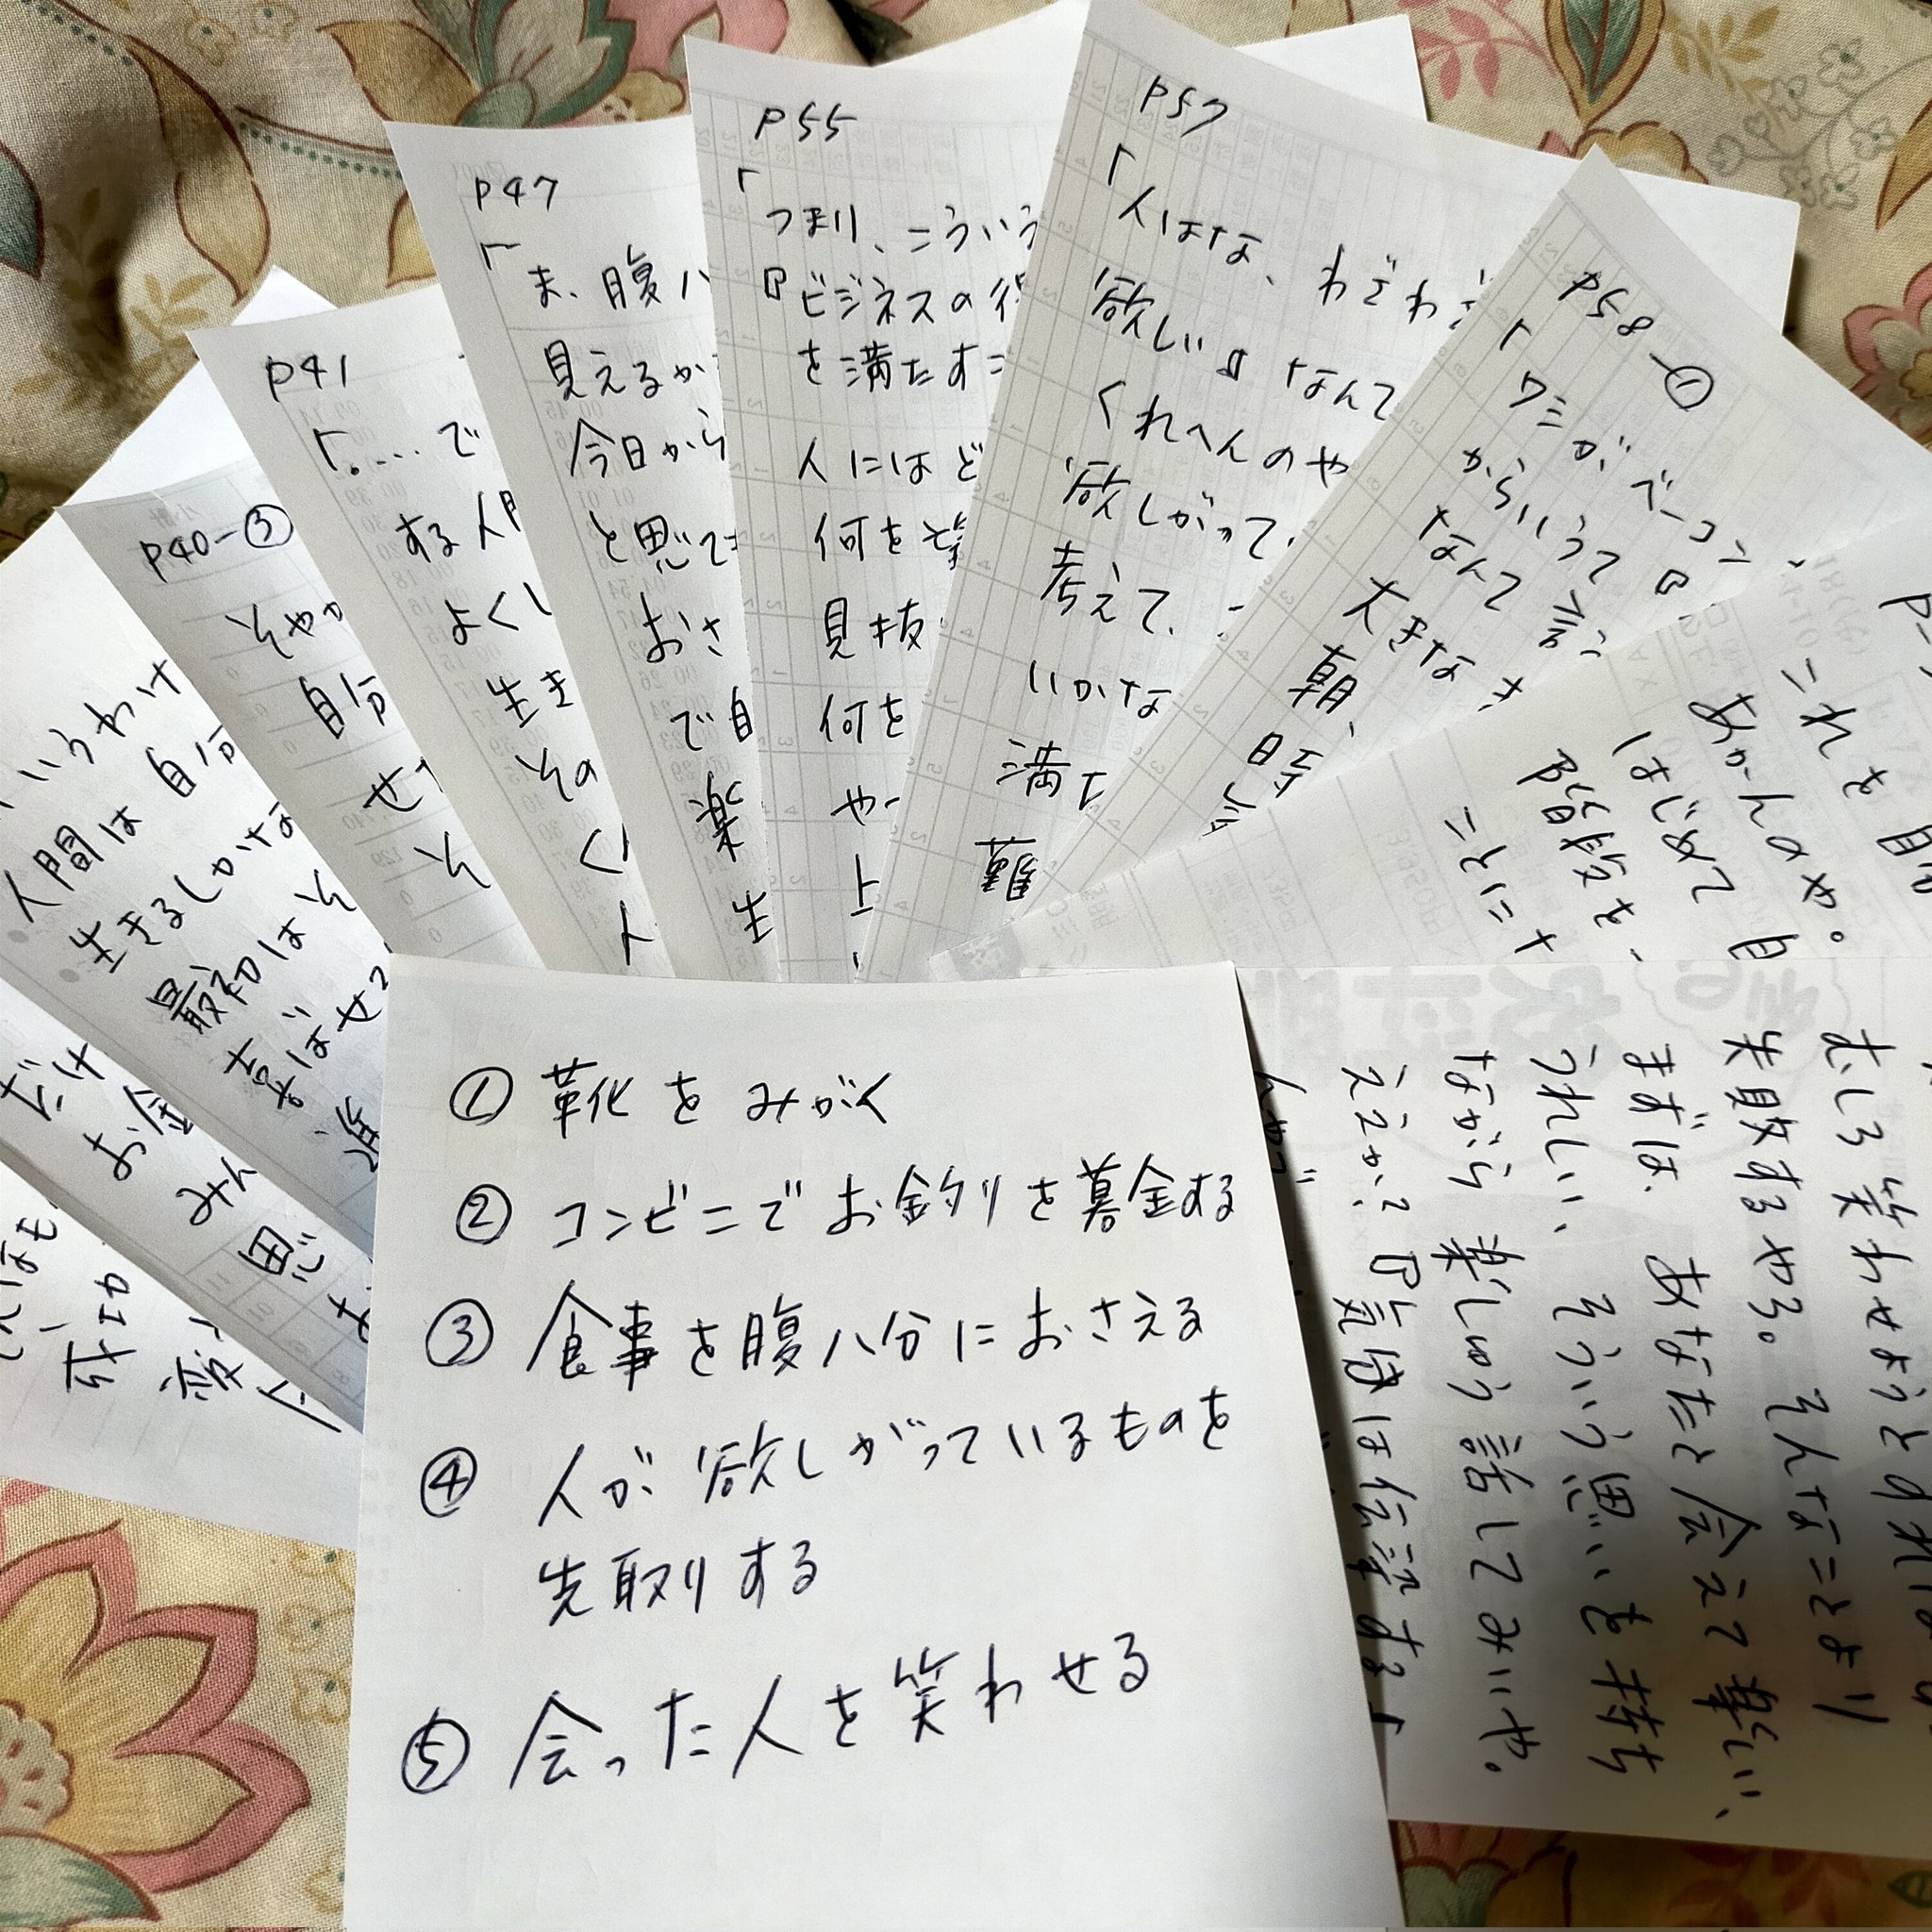 ① 靴をみがく
② コンビニでお釣りを募金する
③ 食事を腹八分におさえる
④ 人が欲しがっているものを
先取りする
⑤ 会った人を笑わせる
いうわけ
人間は自分
生きるしかな
最初はそ
喜ばせ
だけ
お金
みん
思
P40-③
そやか
自分
せ
そ
P41
「。…で
する人間
よくし
生き
その
く
人
P47
「
ま、腹八
見えるか
今日から
と思て
おさ
で自
楽
生
P55
「つまり、こういう
『ビジネスの得
を満たすこ
人にはど
何を望
見抜
何を
や
上
P57
「人はな、わざわざ
欲しいもなんて
くれへんのや
欲しがって、
考えて、
いかな
満た
難
P58-①
「ワシがベーコン
からいうて『
なんて言う
大きなき
朝、
時
これを
あかんのや。
はじめて自
階段を
ことにな
むしろ笑わせようとすれば
失敗するやろ。そんなことより
まずは、あなたと会えて楽しい、
うれしい、そういう思いを持ち
ながら楽しゅう話してみいや。
ええか?『気分は伝染する』
んやで